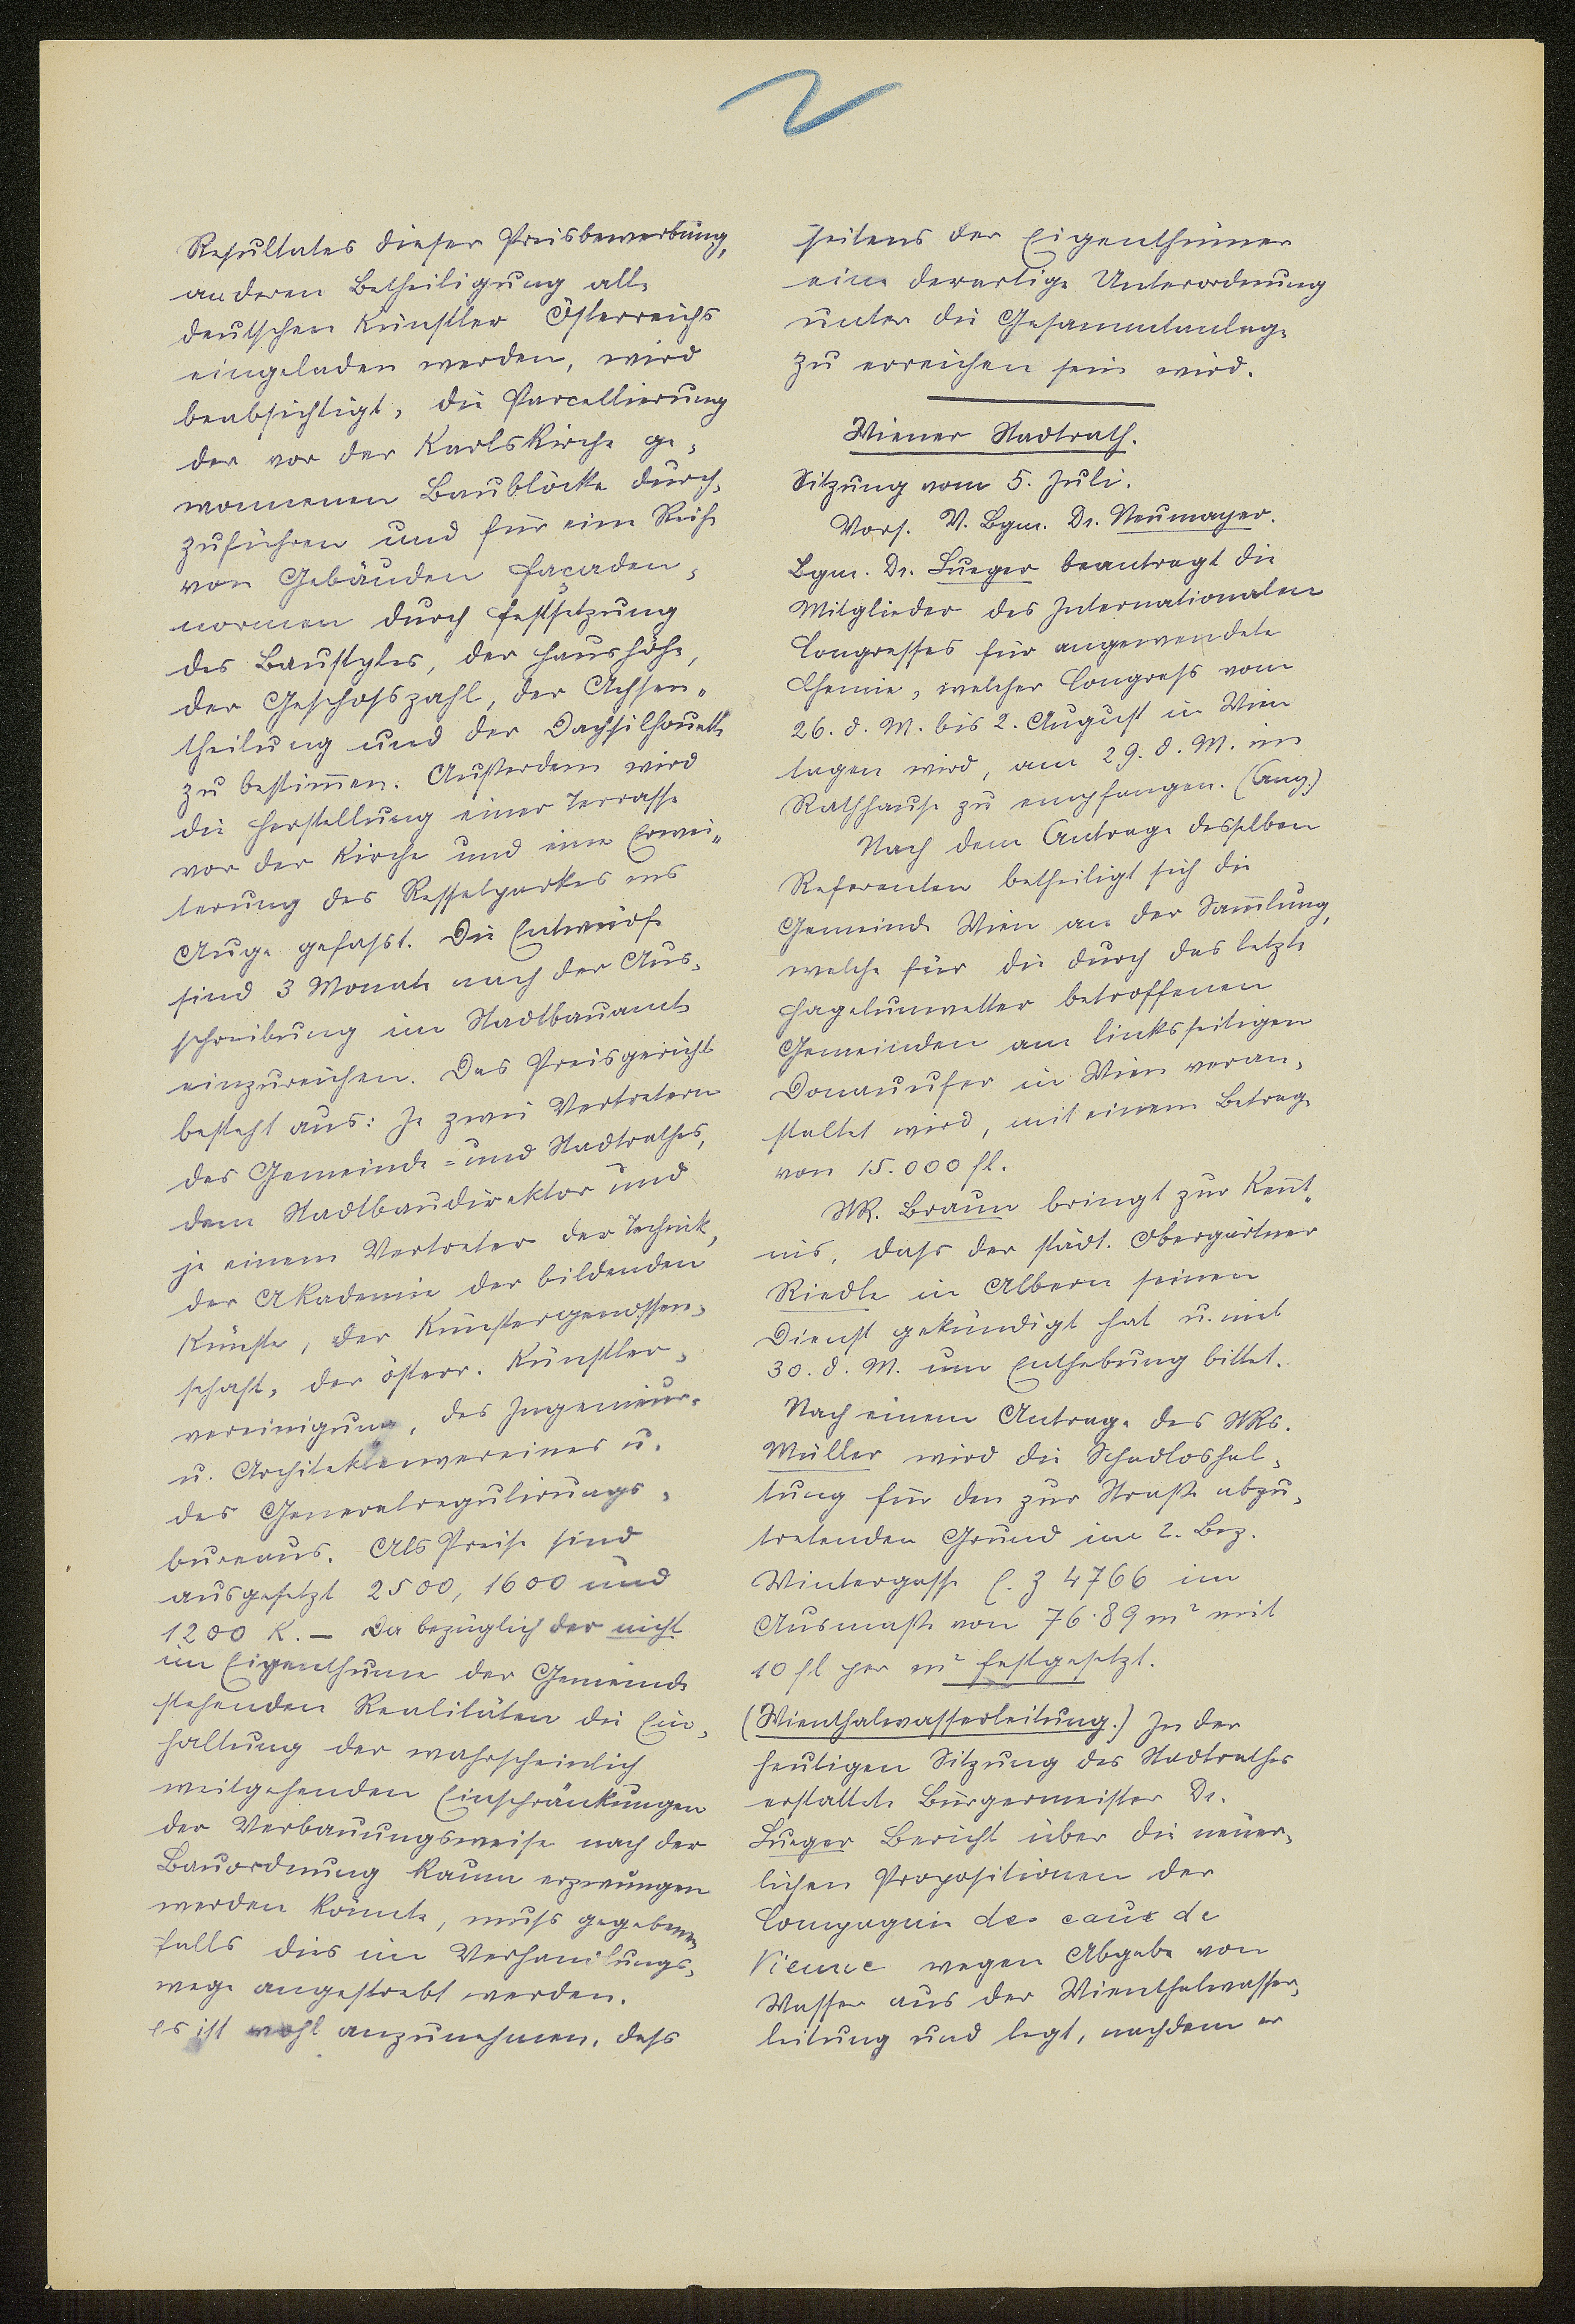 Resultates dieser Preisbewerbung,
an deren Betheiligung alle
deutschen Künstler Österreichs
eingeladen werden, wird
beabsichtigt, die Parcellierung
der vor der Karlskirche ge-
wonnenen Baublöcke durch-
zuführen und für eine Reihe
von Gebäuden Façaden-
normen durch Festsetzung
des Baustyles, der Haushöhe,
der Geschoßzahl, der Achsen-
theilung und der Dachsilhouette
zu bestim̄en. Außerdem wird
die Herstellung einer Terrasse
vor der Kirche und eine Erwei-
terung des Resselparkes ins
Auge gefasst. Die Entwürfe
sind 3 Monate nach der Aus-
schreibung im Stadtbauamte
einzureichen. Das Preisgericht
besteht aus: Je zwei Vertretern
des Gemeinde- und Stadtrathes,
dem Stadtbaudirektor und
je einem Vertreter der Technik,
der Akademie der bildenden
Künste, der Künstergenossen-
schaft, der österr. Künstler-
vereinigung, des Ingenieur-
u. Architektenvereines u.
des Generalregulirungs-
bureaus. Als Preise sind
ausgesetzt 2500, 1600 und
1200 K. – Da bezüglich der nicht
im Eigenthume der Gemeinde
stehenden Realitäten die Ein-
haltung der wahrscheinlich
weitgehenden Einschränkungen
der Verbauungsweise nach der
Bauordnung kaum erzwungen
werden könnte, muss gegebenen-
falls dies im Verhandlungs-
wege angestrebt werden.
Es ist wohl anzunehmen, dass
seitens der Eigenthümer
eine derartige Unterordnung
unter die Gesammtanlage
zu erreichen sein wird.
Wiener Stadtrath.
Sitzung vom 5. Juli.
Vors. V. Bgm. Dr. Neumayer.
Bgm. Dr. Lueger beantragt die
Mitglieder des Internationalen
Congresses für angewendete
Chemie, welcher Congress vom
26. d. M. bis 2. August in Wien
tagen wird, am 29. d. M. im
Rathhause zu empfangen. (Ang.)
Nach dem Antrage desselben
Referenten betheiligt sich die
Gemeinde Wien an der Sam̄lung,
welche für die durch das letzte
Hagelunwetter betroffenen
Gemeinden am linksseitigen
Donauufer in Wien veran-
staltet wird, mit einem Betrage
von 15.000 fl.
StR. Braun bringt zur Ken̄t-
nis, dass der städt. Obergärtner
Riedle in Albern seinen
Dienst gekündigt hat u. mit
30. d. M. um Enthebung bittet.
Nach einem Antrage des StRs.
Müller wird die Schadloshal-
tung für den zur Straße abzu-
tretenden Grund im 2. Bez.
Wintergasse E. Z 4766 im
Ausmaße von 76·89 m² mit
10 fl per m² festgesetzt.
(Wienthalwasserleitung.) In der
heutigen Sitzung des Stadtrathes
erstattete Bürgermeister Dr.
Lueger Bericht über die neuer-
lichen Propositionen der
Compagnie des eaux de
Vienne wegen Abgabe von
Wasser aus der Wienthalwasser-
leitung und legt, nachdem er